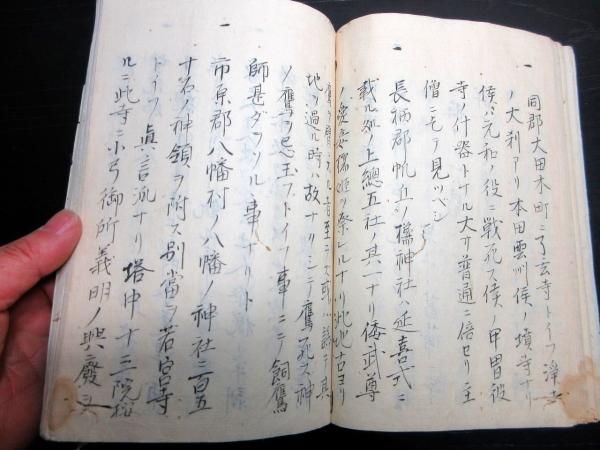 一同郡大田木町ニ了玄寺トイフ淨土
ノ大刹アリ本田雲州侯ノ墳寺ナリ
侯ハ元和ノ役ニ戦死ス侯ノ甲冑彼
寺ノ什器トナル大サ普通ニ倍セリ主
僧ニモアヘ見ツベシ
一長柄郡帆丘ノ橘神社ハ延喜式ニ
載ル処ノ上總五社其一ナリ倭武尊
ノ后妃橘姫ヲ祭レルナリ此地古ヨリ
鷹
地ヲ過ル時ハ故ナリシテ鷹死ス神
ノ鷹ヲ忌玉フトイフ事ニテ飼鷹
師甚ダヲソル事ナリト
一市原郡八幡村ノ八幡ノ神社二百五
十石ノ神領ヲ附ス別當ヲ若宮寺
トイフ眞言派ナリ塔中十三院
ルニ此寺ニ小弓御所義明ノ興廢